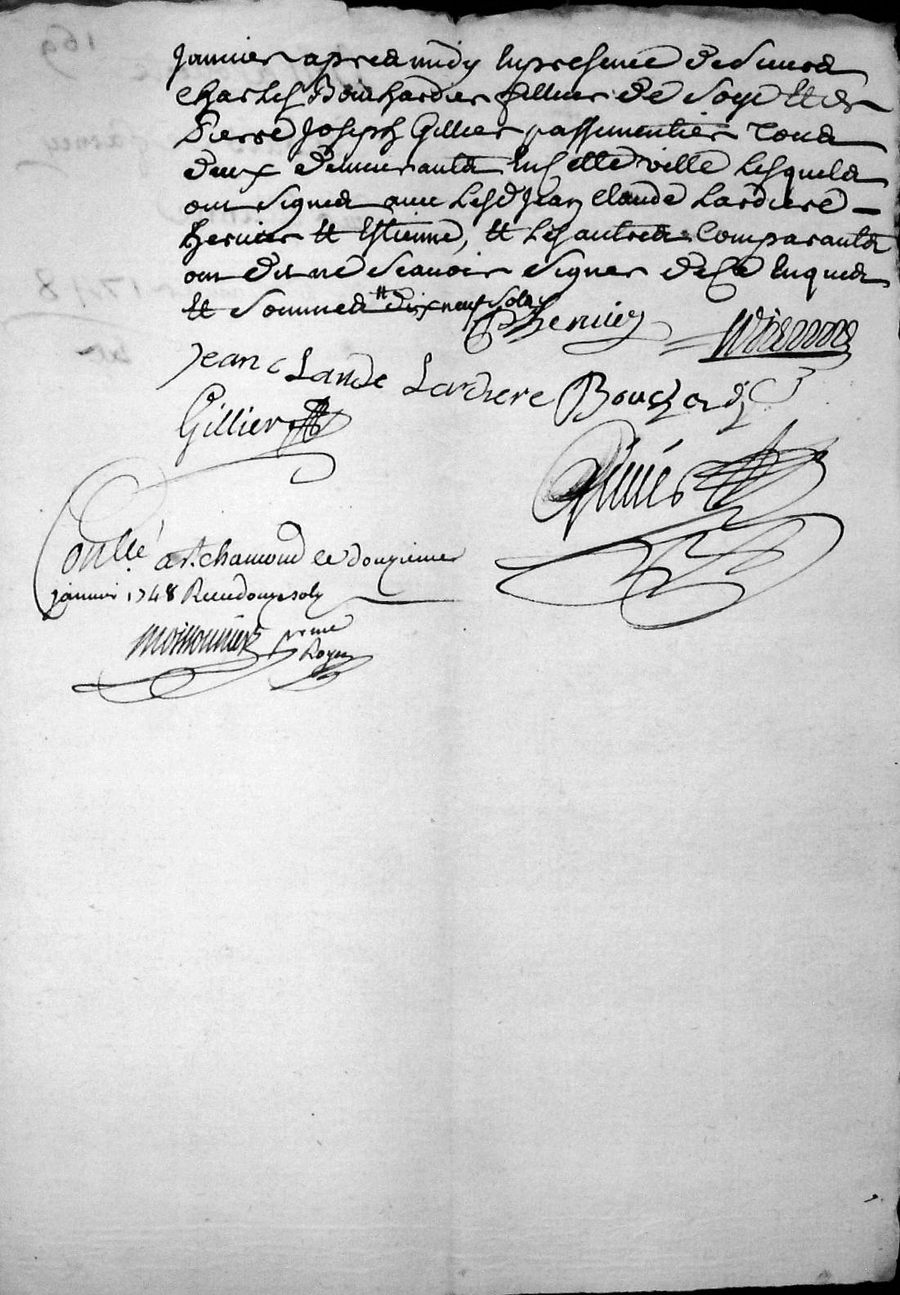 janvier apres midy en presence de sieurs
charles Bouchardier fillier de soye et de
Pierre Joseph Gillier passementier tous
deux demeurants en cette ville lesquels
ont signés avec lesd Jean Claude Lardiere
hervier et Estienne, et les autres comparants
ont dit ne scavoir signer de ce enquis
et sommes dix neuf sols
Hervier
Jean Claude Lardiere Bouchard
Gillier
Conllé a St. chamond le douzieme
janvier 1748 Recu douze sols
moissonnier